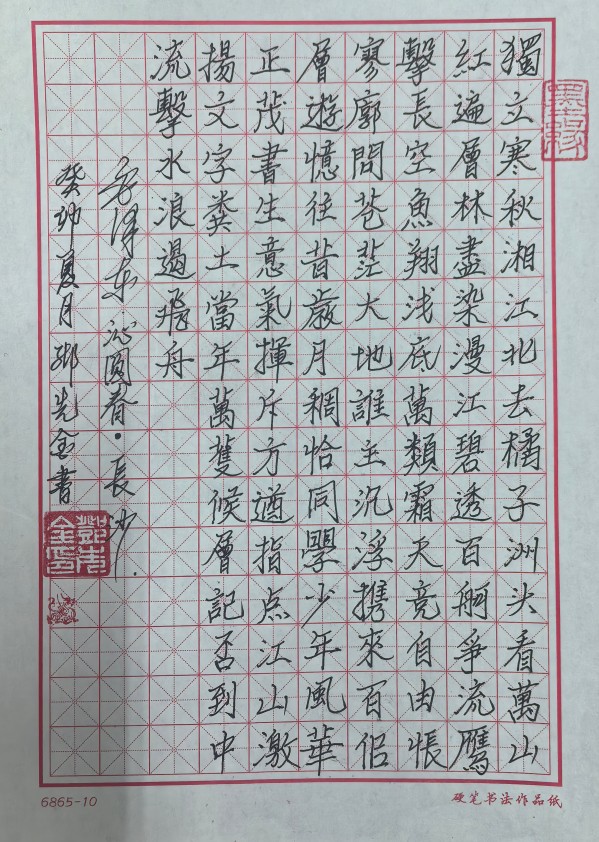 獨立寒秋湘江北去橘子洲头看萬山
紅遍層林盡染漫江碧透百舸爭流鷹
擊長空魚翔浅底萬類霜天竞自由悵
寥廓問苍茫大地誰主沉浮携來百侣
層遊憶往昔嵗月稠恰同學少年風華
正茂書生意氣揮斥方遒指点江山激
揚文字粪土當年萬候層記否到中
流擊水浪遏飛舟
毛泽东·沁園春·長沙
癸卯夏月鄧先金書
鄧先金印
6865-10
硬笔书法作品纸